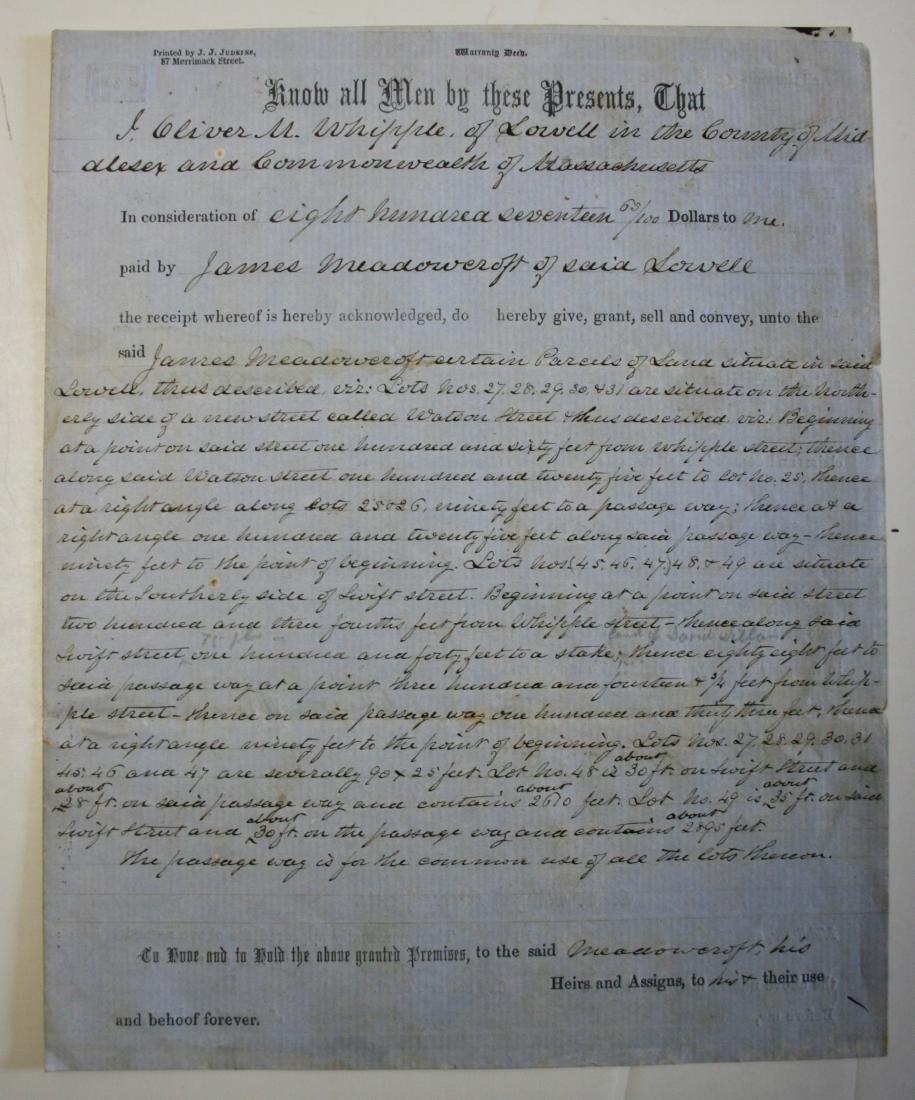 Printed by J. J. Judkins,
87 Merrimack Street.
Warranty Deed.
Know all Men by these Presents, That
I, Oliver M. Whipple, of Lowell in the County of Mid-
dlesex and Commonwealth of Massachusetts
In consideration of eight hundred seventeen 65/100 Dollars to me.
paid by James Meadowcroft of said Lowell
the receipt whereof is hereby acknowledged, do hereby give, grant, sell and convey, unto the
said James Meadowcroft certain Parcels of Land situate in said
Lowell, thus described, viz: Lots Nos. 27, 28, 29, 30, & 31 are situate on the North-
erly side of a new street called Watson Street & thus described viz: Beginning
at a point on said street one hundred and sixty feet from Whipple street; thence
along said Watson street one hundred and twenty five feet to lot No. 25, thence
at a right angle along Lots 25 & 26, ninety feet to a passage way; thence at a
right angle one hundred and twenty five feet along said passage way - thence
ninety feet to the point of beginning. Lots Nos. (45, 46, 47,) 48, & 49 are situate
on the Southerly side of Swift street. Beginning at a point on said street
two hundred and three fourths feet from Whipple street - thence along said
land of David
Swift street, one hundred and forty feet to a stake; thence eighty eight feet to
said passage way at a point three hundred and fourteen & 3/4 feet from Whip-
ple street - thence on said passage way one hundred and thirty three feet, thence
at a right angle ninety feet to the point of beginning. Lots Nos. 27, 28, 29, 30, 31
45, 46 and 47 are severally 90 x 25 feet. Lot No. 48 is about 30 ft. on Swift Street and
about 28 ft. on said passage way and contains about 2610 feet. Lot No. 49 is about 35 ft. on said
Swift Street and about 30 ft. on the passage way and contains about 2895 feet.
The passage way is for the common use of all the lots thereon.
To Have and to Hold the above granted Premises, to the said Meadowcroft, his
Heirs and Assigns, to his & their use
and behoof forever.